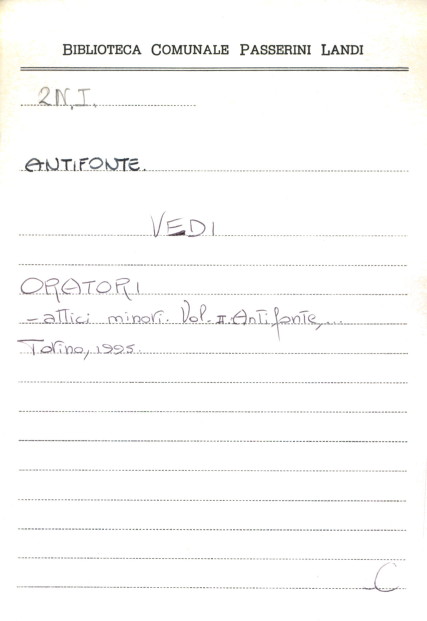 BIBLIOTECA COMUNALE PASSERINI LANDI
2N.I.
ANTIFONTE.
VEDI
ORATORI
- attici minori. Vol. II. Antifonte,...
Torino, 1995.
C